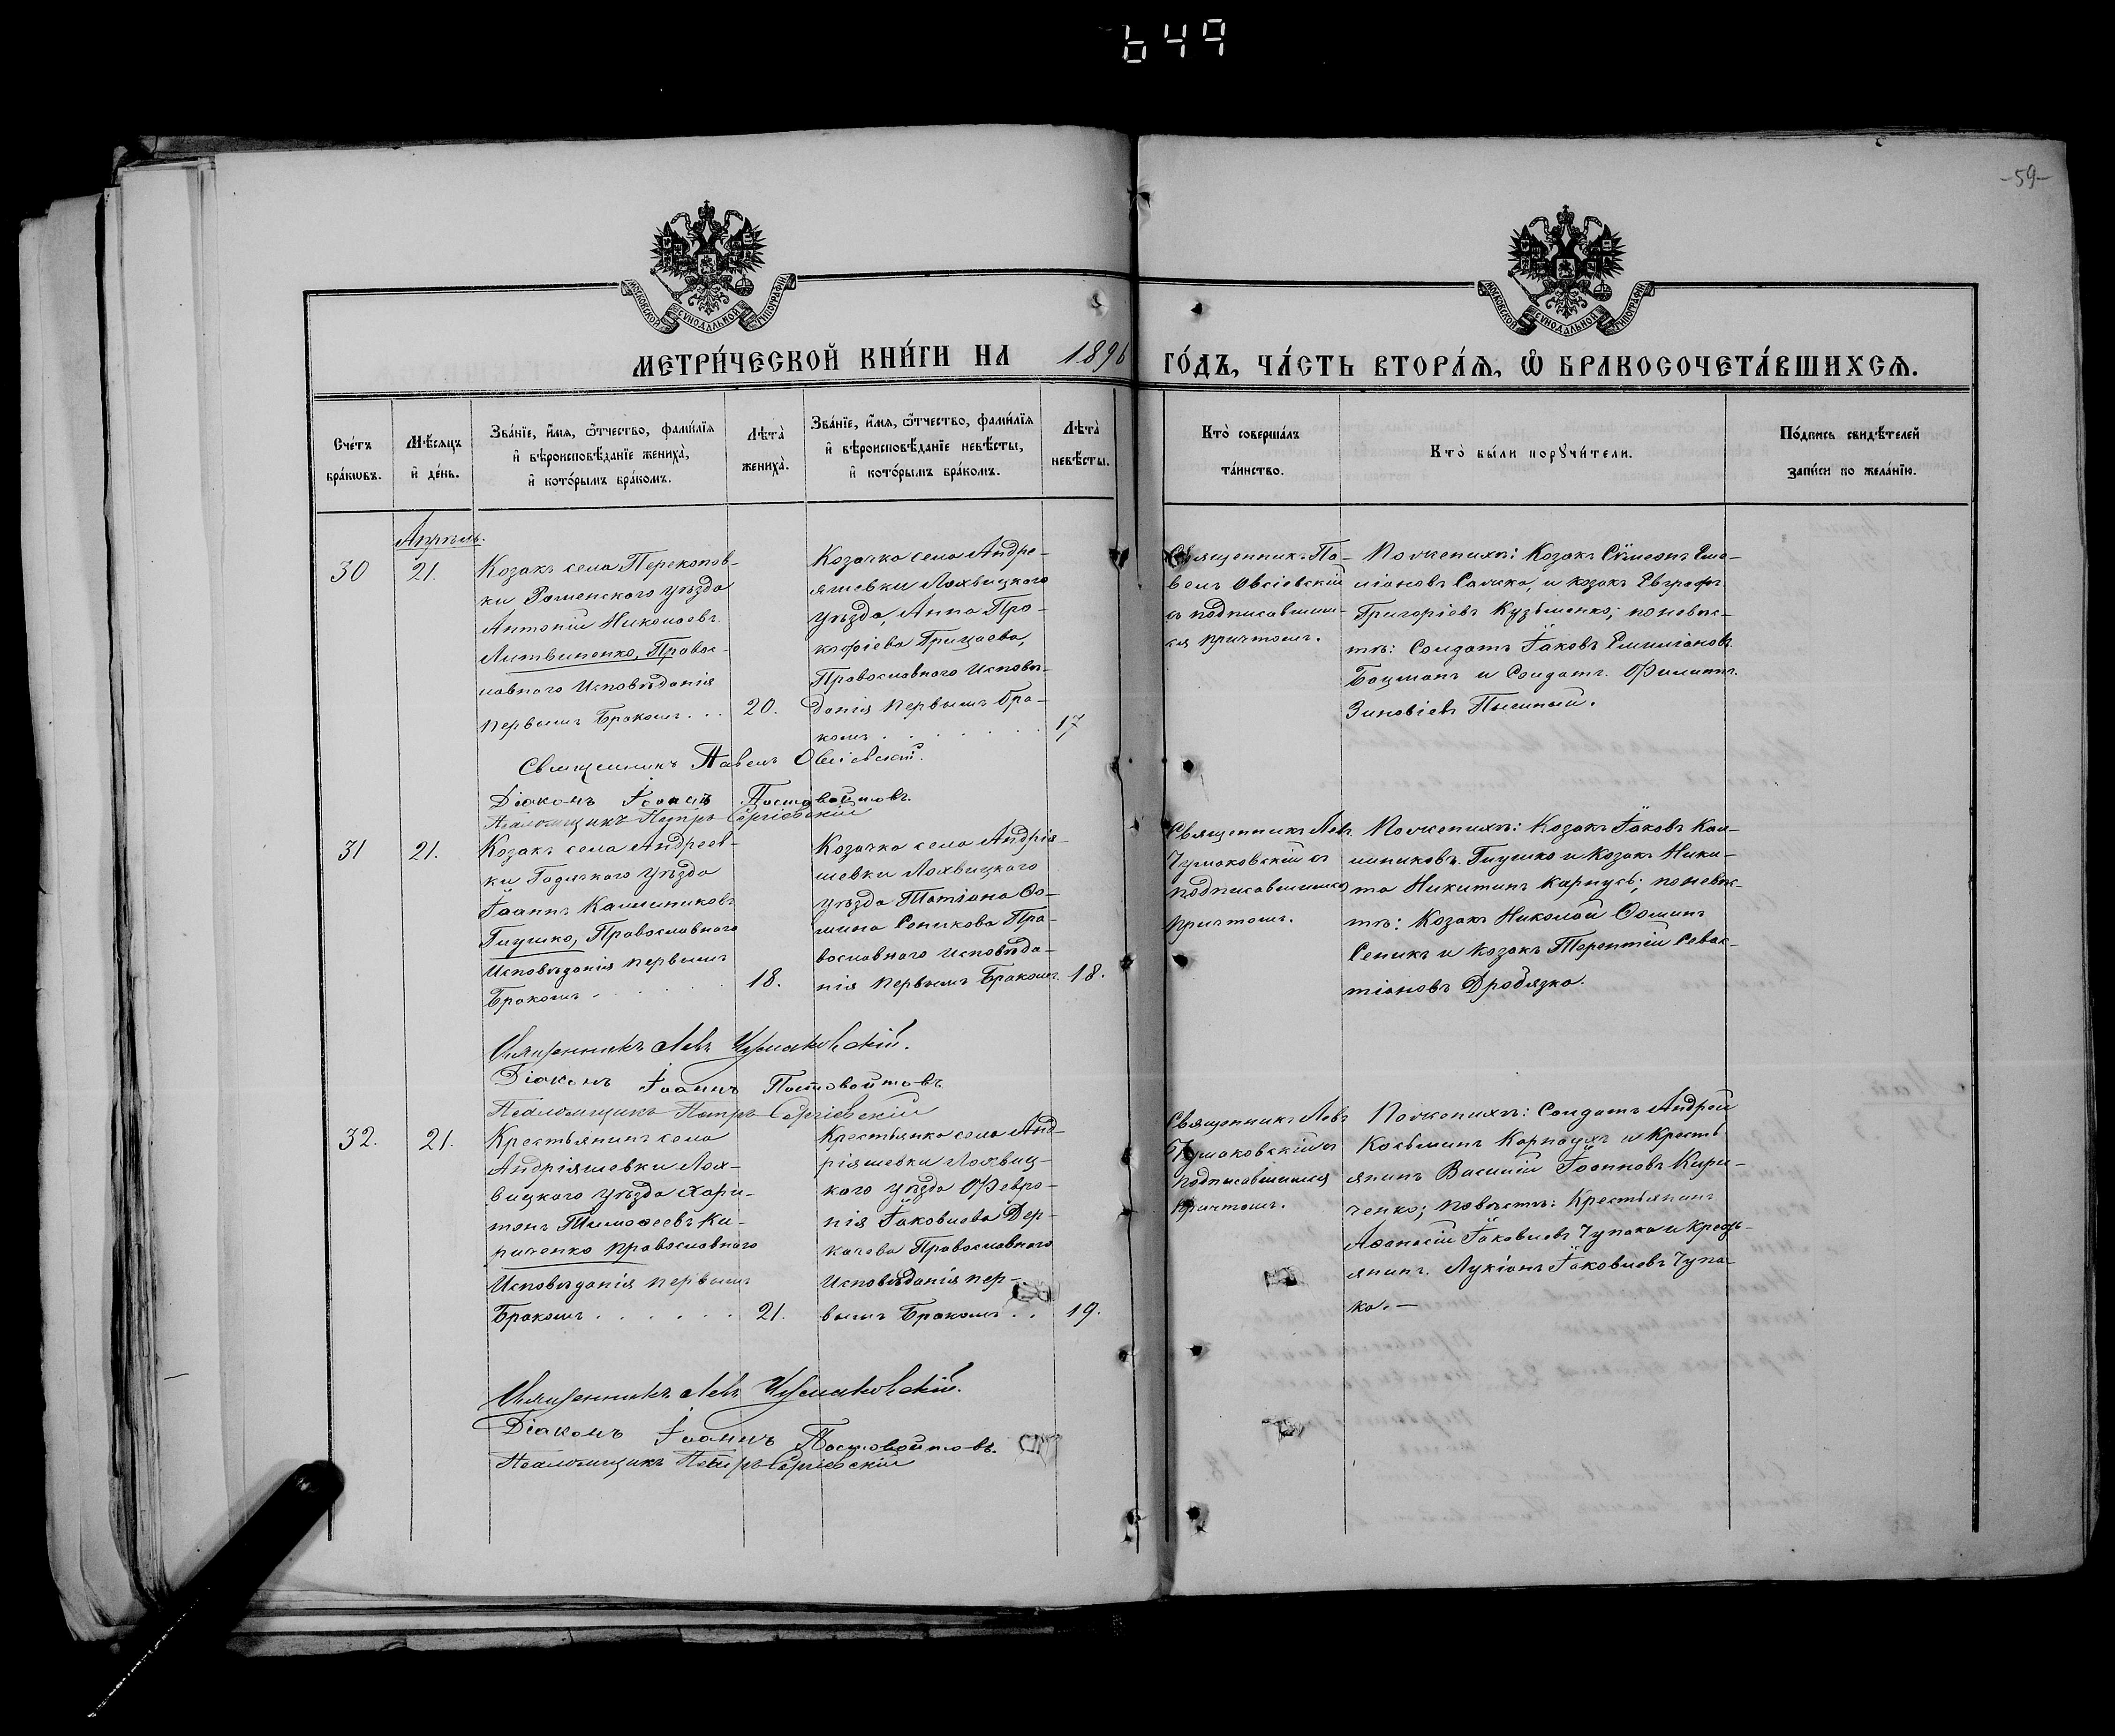 649
-59-
МОСКОВСКОЙ СѴНОДАЛЬНОЙ ТИПОГРАФІИ
МОСКОВСКОЙ СѴНОДАЛЬНОЙ ТИПОГРАФІИ
МЕТРИ́ЧЕСКОЙ КНИ́ГИ НА 1896 ГО́ДЪ, ЧА́СТЬ ВТОРА́Ѧ, Ѽ БРАКОСОЧЕТА́ВШИХСѦ.
Сче́тъ
бра́кѡвъ.
Мѣ́сяцъ
и҆ де́нь.
Зва́нїе, и҆́мя, ѻ҆́тчество, фами́лїя
и҆ вѣроисповѣ́данїе жениха̀,
и҆ кото́рымъ бра́комъ.
Лѣта̀
жениха̀.
Зва́нїе, и҆́мя, ѻ҆́тчество, фами́лїя
и҆ вѣроисповѣ́данїе невѣ́сты,
и҆ кото́рымъ бра́комъ.
Лѣта̀
невѣ́сты.
Кто̀ соверша́лъ
та́инство.
Кто̀ бы́ли порꙋчи́тели.
По́дпись свидѣ́телей
за́писи по жела́нїю.
Апрѣль.
30
21.
Козакъ села Перекопов-
ки Роменскаго уѣзда
Антоній Николаевъ
Литвиненко, Правос-
лавнаго Исповѣданія
первымъ бракомъ. . .
20.
Козачка села Андре-
яшевки Лохвицкаго
уѣзда, Анна Про-
кофіева Грицаева,
Православнаго Исповѣ-
данія первымъ бра-
комъ . . . . . . .
17
Священникъ Па-
велъ Овсіевскій
съ подписавшим-
ся причтомъ.
По женихѣ: Козакъ Сѵмеонъ Еме-
ліановъ Салижа, и козакъ Евграфъ
Григоріевъ Кузьменко; по невѣс-
тѣ: Солдатъ Іаковъ Емиліановъ
Боцманъ и Солдатъ Филиппъ
Зиновіевъ Пышный.
Священникъ Павелъ Овсіевскій.
Діаконъ Іоаннъ Постовойтовъ.
Псаломщикъ Петръ Сергіевскій
31
21.
Козакъ села Андреев-
ки Гадячкаго уѣзда
Іоаннъ Каллиниковъ
Глушко, Православнаго
Исповѣданія первымъ
бракомъ . . . . .
18.
Козачка села Андрія-
шевки Лохвицкаго
уѣзда Татіана Ѳо-
мина Сеникова Пра-
вославнаго Исповѣда-
нія первымъ бракомъ.
18.
Священникъ Левъ
Чумаковскій съ
подписавшимся
причтомъ.
По женихѣ: Козакъ Іаковъ Кал-
линиковъ Глушко и Козакъ Ники-
та Никитинъ Карпусь; по невѣс-
тѣ: Козакъ Николай Ѳоминъ
Сеникъ и козакъ Терентій Севас-
тіановъ Дробязка.
Священникъ Левъ Чумаковскій.
Діаконъ Іоаннъ Постовойтовъ
Псаломщикъ Петръ Сергіевскій
32.
21.
Крестьянинъ села
Андріяшевки Лох-
вицкаго уѣзда Хари-
тонъ Тимоѳеевъ Ки-
риченко православнаго
Исповѣданія первымъ
бракомъ . . . . . .
21.
Крестьянка села Анд-
ріяшевки Лохвиц-
каго уѣзда Февро-
нія Іаковлева Дер-
качева Православнаго
Исповѣданія пер-
вымъ бракомъ . .
19.
Священникъ Левъ
Чумаковскій съ
подписавшимся
причтомъ.
По женихѣ: Солдатъ Андрей
Косьминъ Карнаухъ и Кресть
янинъ Василій Іоанновъ Кири-
ченко; по невѣстѣ: Крестьянинъ
Аѳанасій Іаковлевъ Чупака и Кресть-
янинъ Лукіанъ Іаковлевъ Чупа-
ка. —
Священникъ Левъ Чумаковскій.
Діаконъ Іоаннъ Постовойтовъ.
Псаломщикъ Петръ Сергіевскій